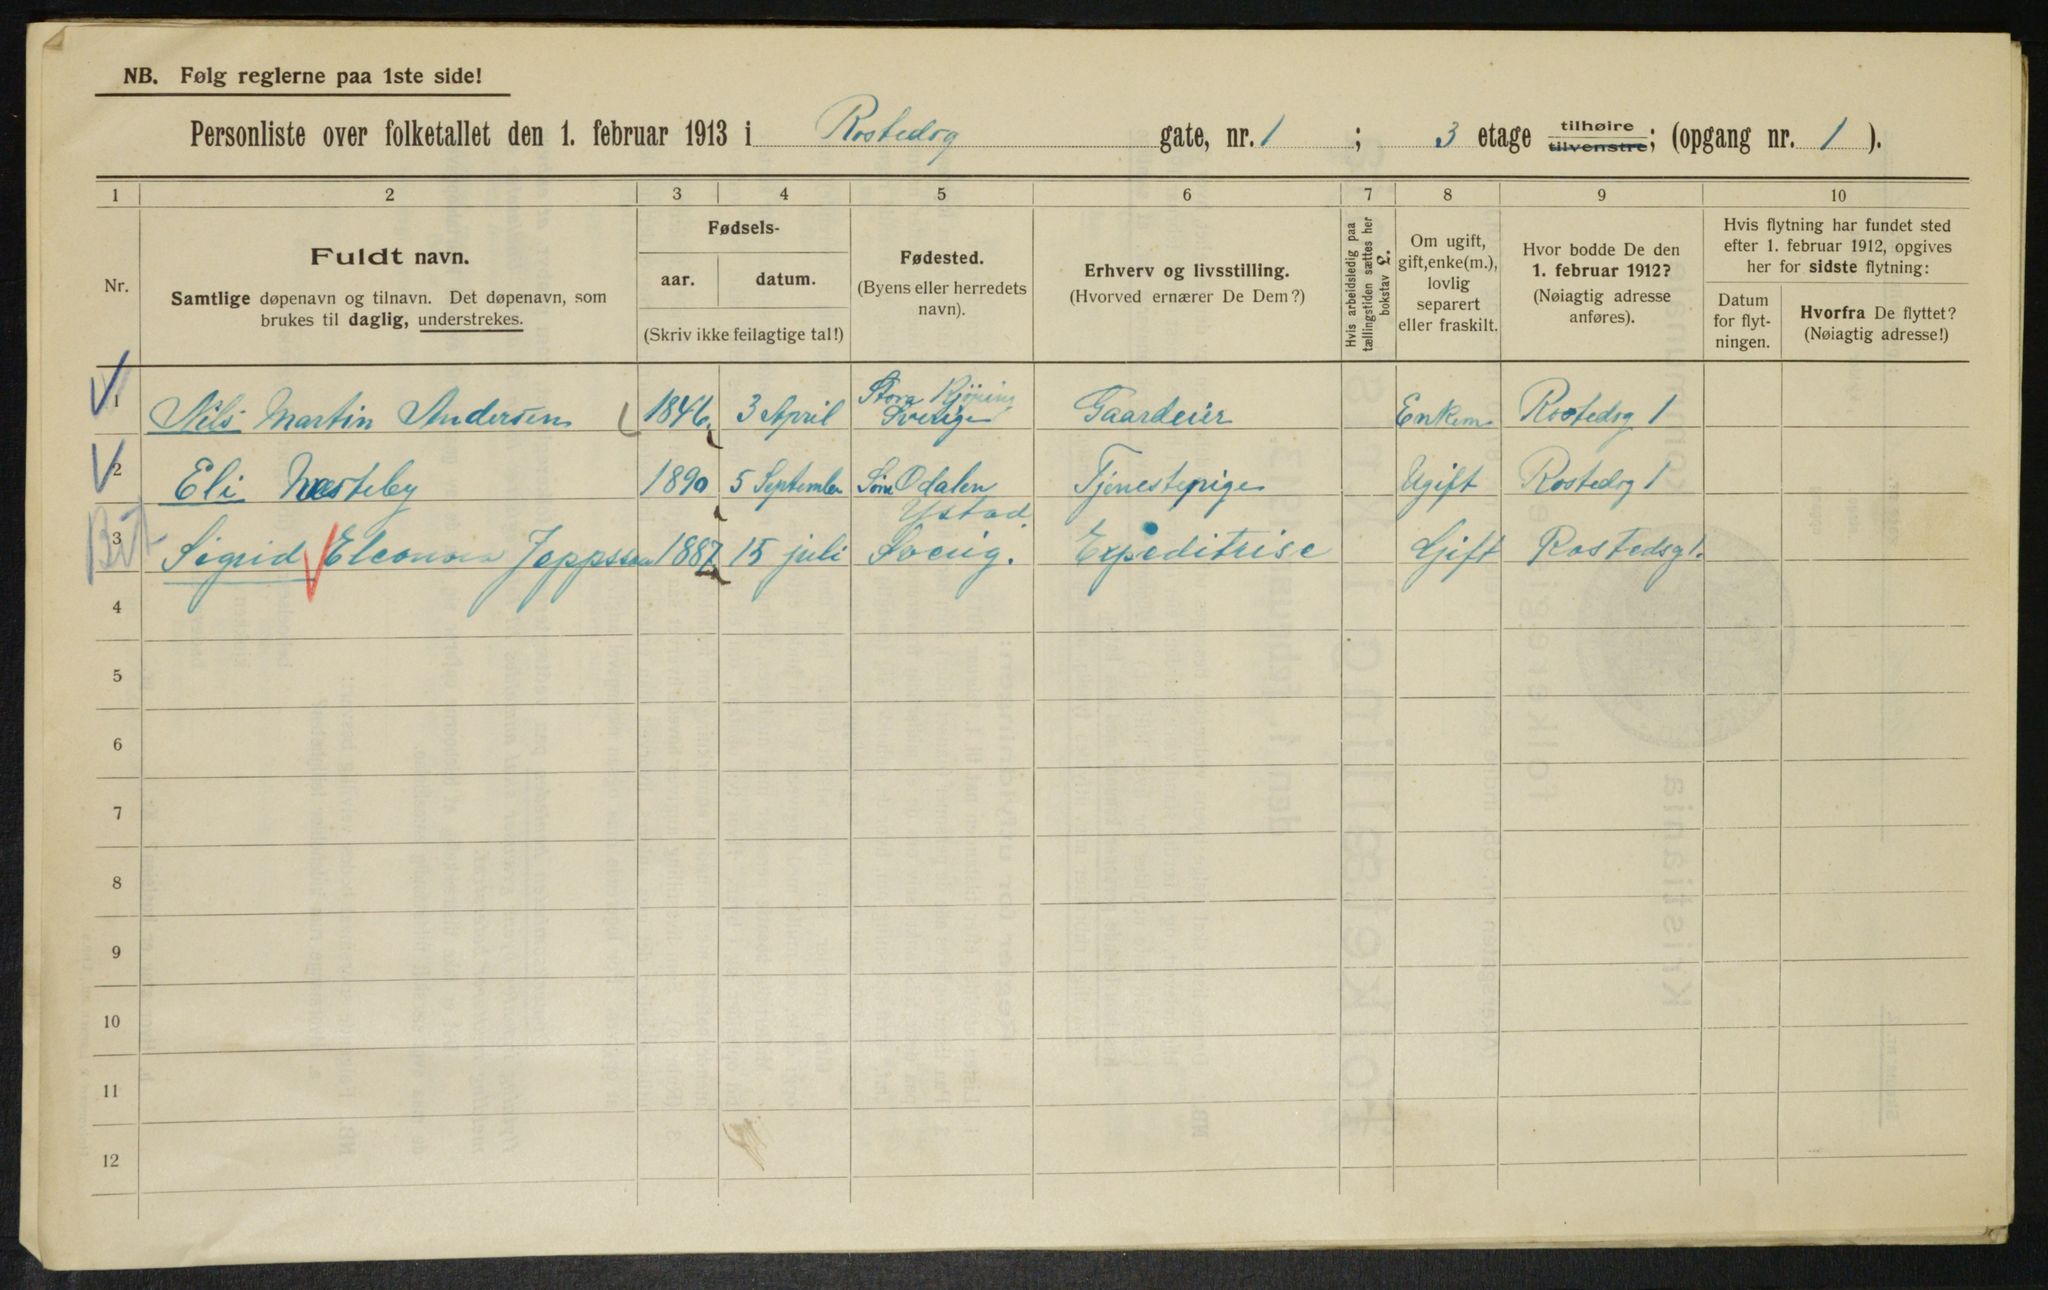 NB. Følg reglerne paa 1ste side!
Personliste over folketallet den 1. februar 1913 i Rostedsg gate, nr. 1 ; 3 etage tilhøire tilvenstre; (opgang nr. 1 ).
1 2 3 4 5 6 7 8 9 10
Nr.
Fuldt navn.
Samtlige døpenavn og tilnavn. Det døpenavn, som
brukes til daglig, understrekes.
Fødsels-
aar. datum.
(Skriv ikke feilagtige tal!)
Fødested.
(Byens eller herredets
navn).
Erhverv og livsstilling.
(Hvorved ernærer De Dem?)
Hvis arbeidsledig paa
tællingstiden sættes her
bokstav L.
Om ugift,
gift, enke(m.),
lovlig
separert
eller fraskilt.
Hvor bodde De den
1. februar 1912?
(Nøiagtig adresse
anføres).
Hvis flytning har fundet sted
efter 1. februar 1912, opgives
her for sidste flytning:
Datum
for flyt-
ningen.
Hvorfra De flyttet?
(Nøiagtig adresse!)
1 Nils Martin Andersen 1846 3 April Stora Kjöping Sverige Gaardeier Enkem Rostedsg 1
2 Eli Næsteby 1890 5 September Søndre Odalen Tjenestepige Ugift Rostedsg 1
3 Sigrid Eleonora Jeppsson 1887 15 juli Ystad Sverig. Expeditrise Gift Rostedsg 1.
4
5
6
7
8
9
10
11
12